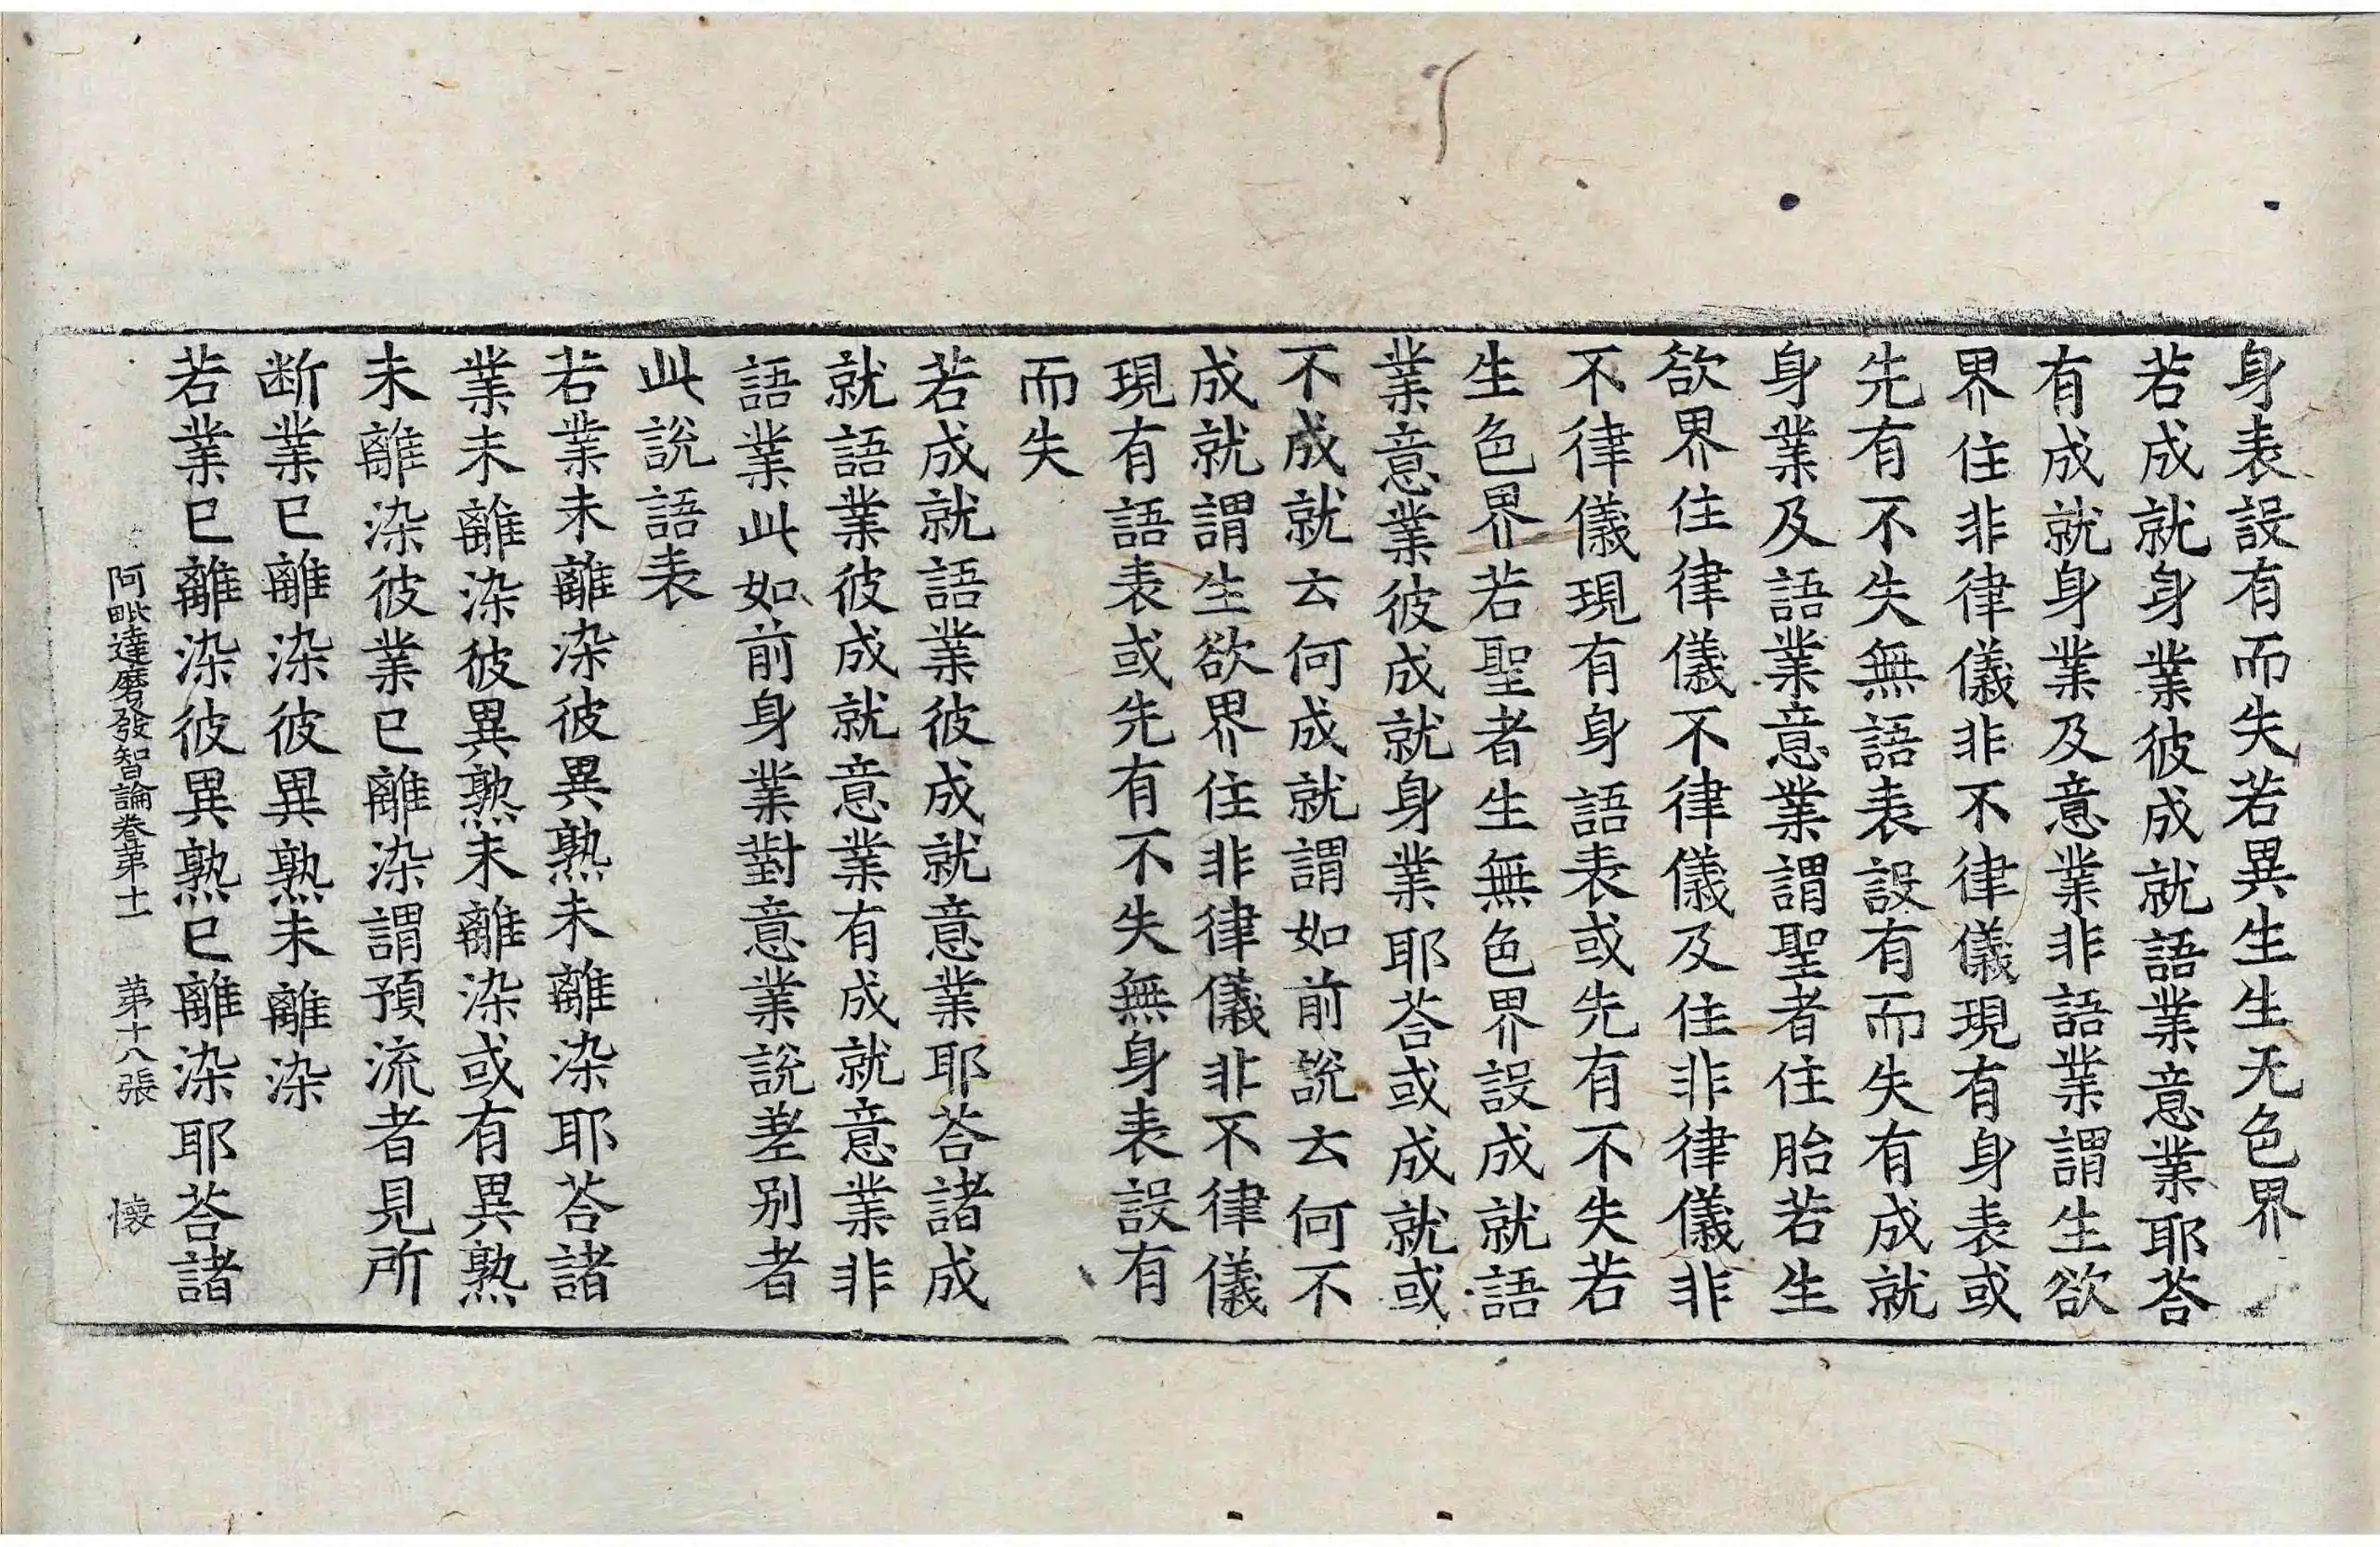 身表設有而失若異生生无色界
若成就身業彼成就語業意業耶荅
有成就身業及意業非語業謂生欲
界住非律儀非不律儀現有身表或
先有不失無語表設有而失有成就
身業及語業意業謂聖者住胎若生
欲界住律儀不律儀及住非律儀非
不律儀現有身語表或先有不失若
生色界若聖者生無色界設成就語
業意業彼成就身業耶荅或成就或
不成就云何成就謂如前說云何不
成就謂生欲界住非律儀非不律儀
現有語表或先有不失無身表設有
而失
若成就語業彼成就意業耶荅諸成
就語業彼成就意業有成就意業非
語業此如前身業對意業說差別者
此說語表
若業未離染彼異熟未離染耶荅諸
業未離染彼異熟未離染或有異熟
未離染彼業已離染謂預流者見所
断業已離染彼異熟未離染
若業已離染彼異熟已離染耶荅諸
阿毗達磨發智論卷第十一 第十八張 懐